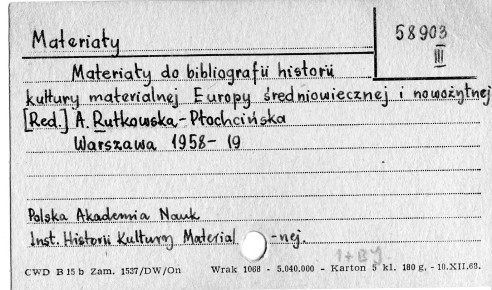 Materiały
58903
III
Materiały do bibliografii historii
kultury materialnej Europy średniowiecznej i nowożytnej
[Red.] A. Rutkowska-Płachcińska
Warszawa 1958-19
Polska Akademia Nauk
Inst. Historii Kultury Material -nej.
1+BJ
CWD B 15 b Zam. 1537/DW/On Wrak 1068 - 5.040.000 - Karton 5 kl. 180 g. - 10.XII.68.